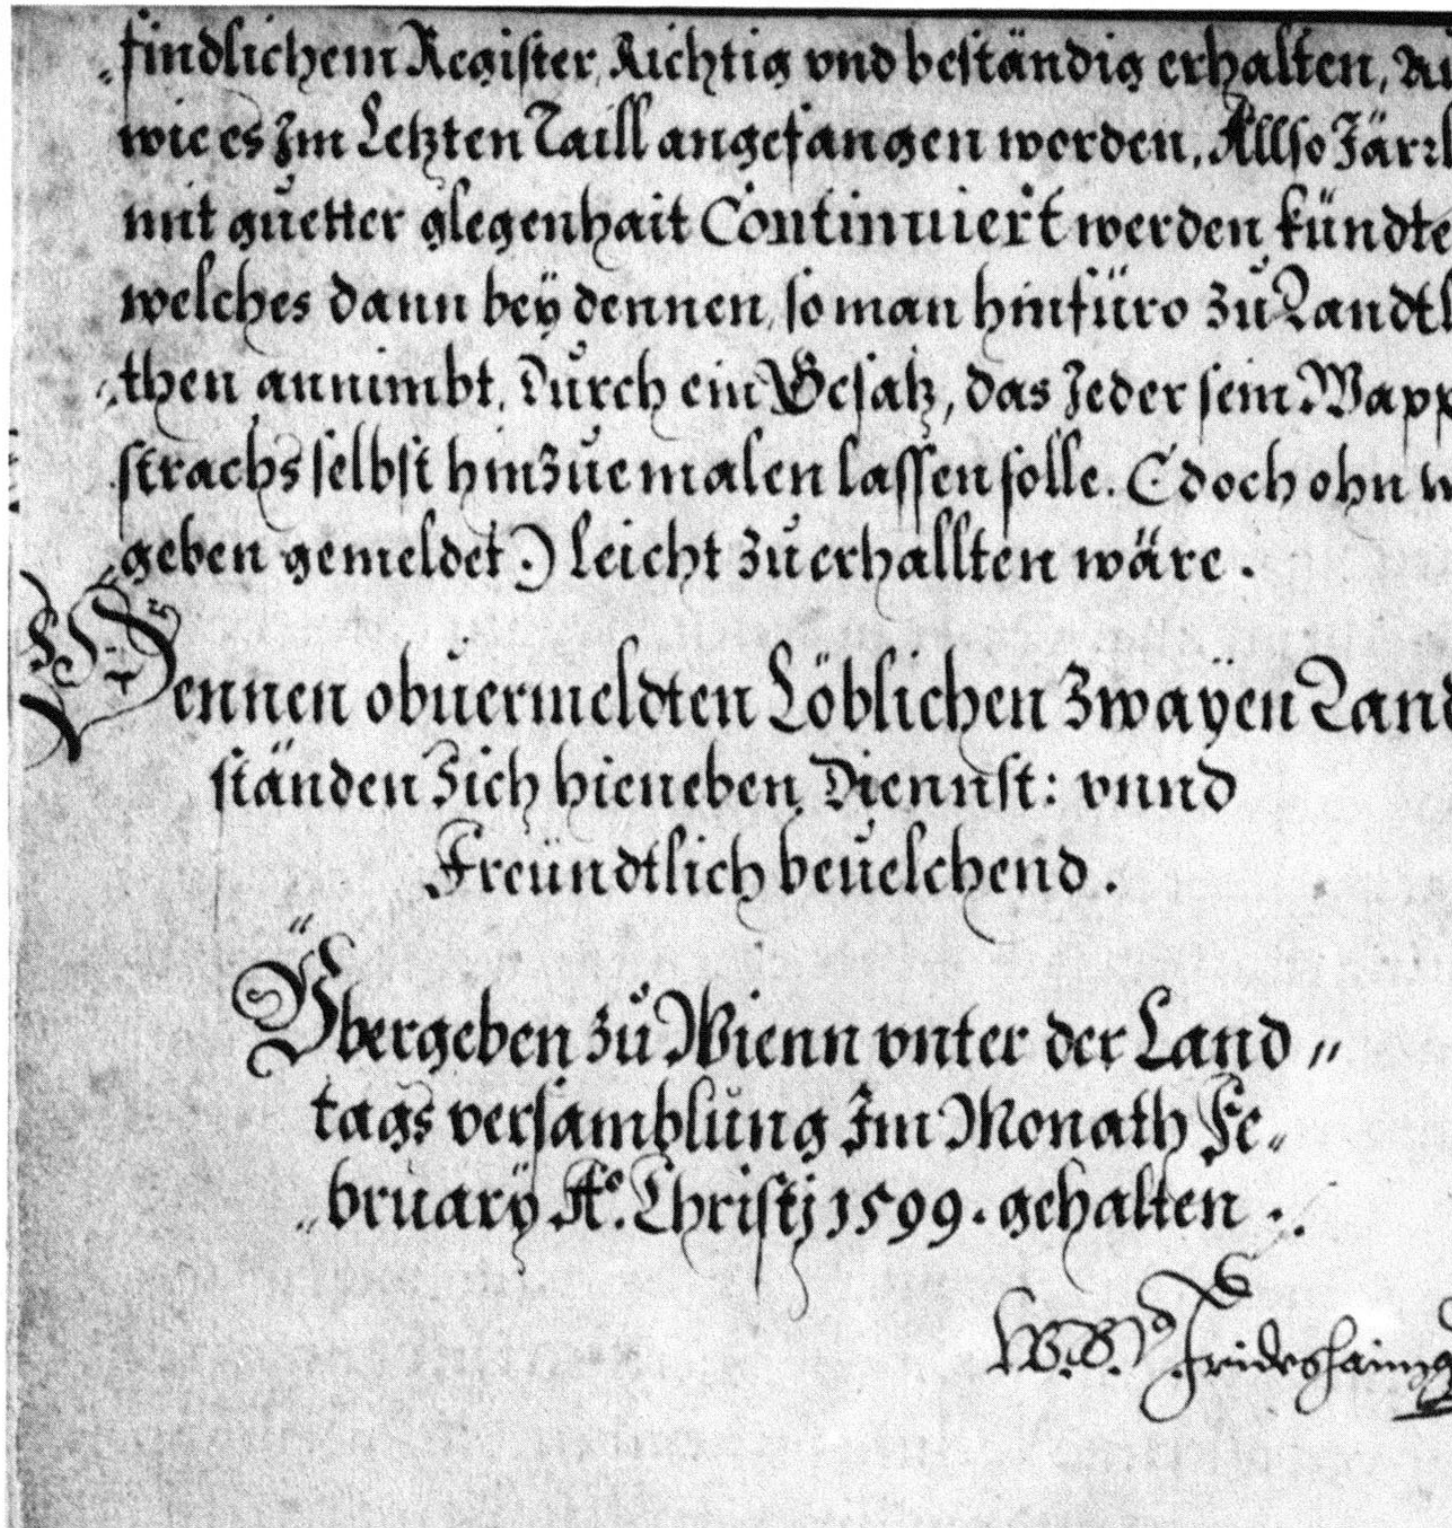 „findlichem Register, Richtig vnd beständig erhalten,
wie es Im Letzten Taill angefangen worden, Allso Järl
mit guetter glegenhait Continuiert werden kündte
welches dann bey dennen, so man hinfüro zu Landtl
„then annimbt, Durch ein Gesatz, das Jeder sein Wapp
strachs selbst hinzue malen lassen solle. (doch ohn
„geben gemeldet.) Leicht zu erhallten wäre.
Dennen obuermeldten Löblichen Zwayen Land
ständen Sich hieneben, Diennst: vnnd
Freündtlich beuelchend.
Übergeben zu Wienn vnter der Land„
tags versamblung Im Monath Fe„
„bruary Aº. Christj 1599. gehalten.
W.W. Frideshaim